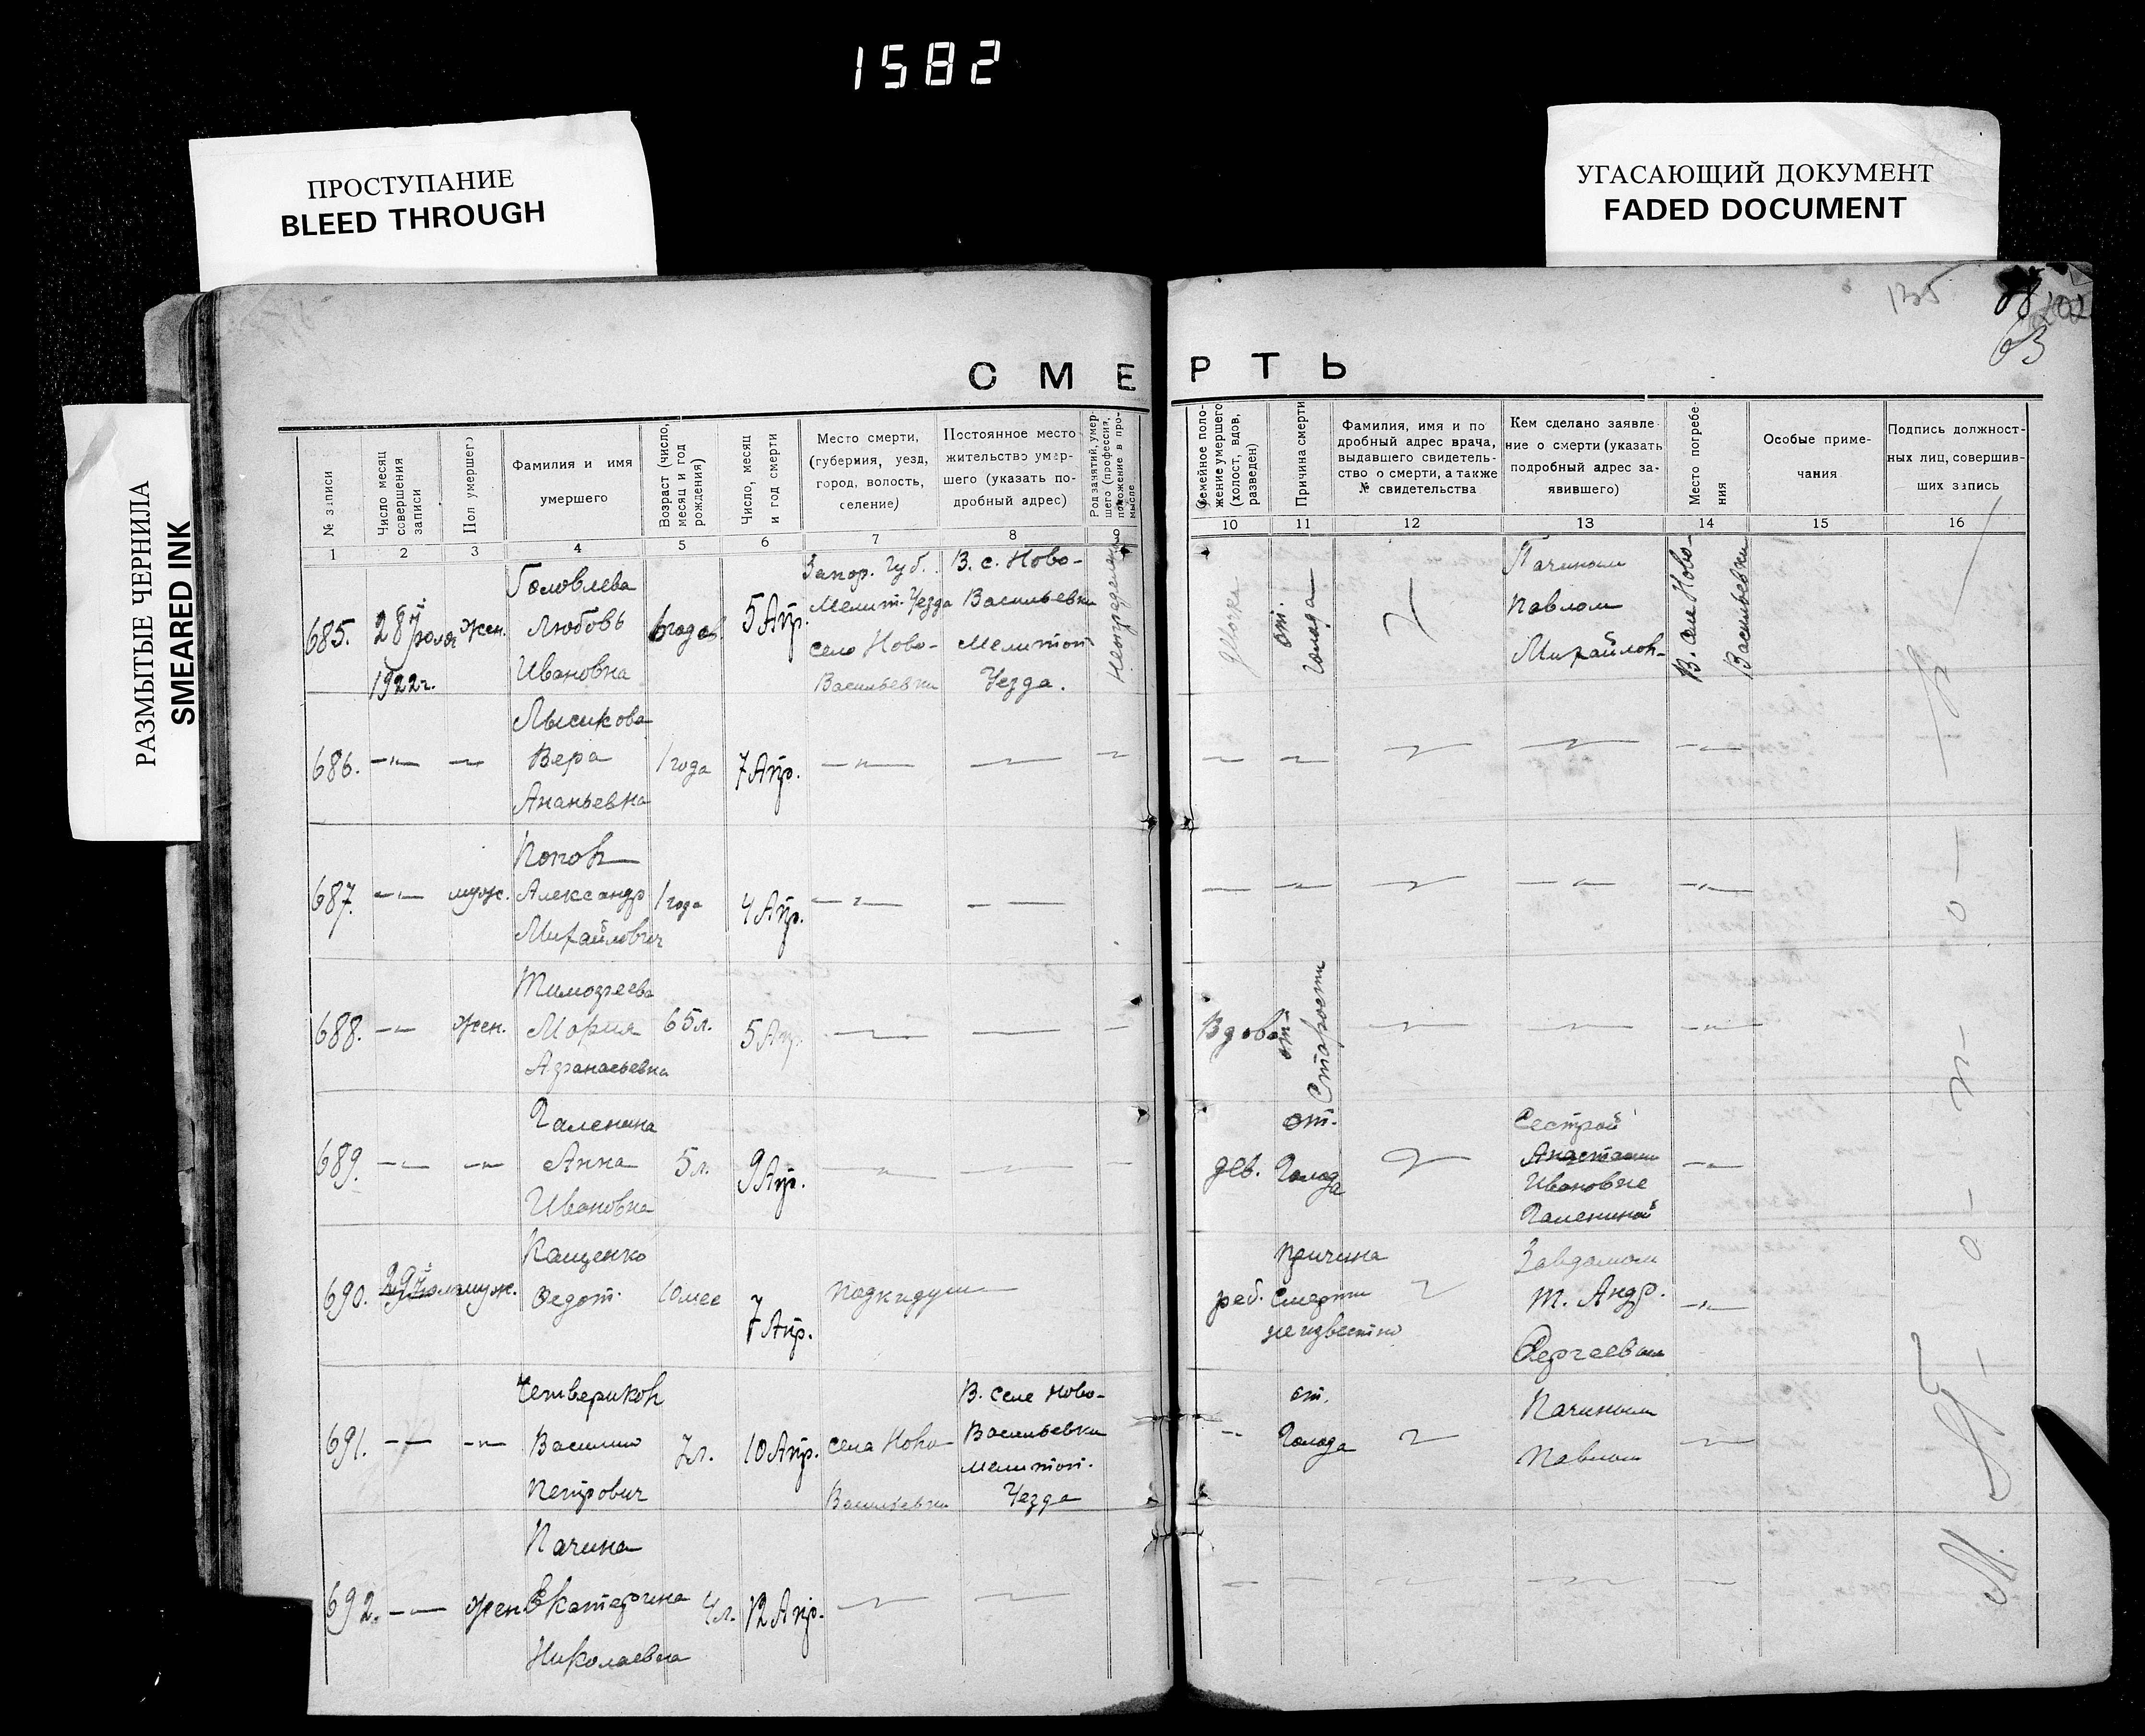 1582
ПРОСТУПАНИЕ
BLEED THROUGH
УГАСАЮЩИЙ ДОКУМЕНТ
FADED DOCUMENT
РАЗМЫТЫЕ ЧЕРНИЛА
SMEARED INK
135
63
СМЕРТЬ
№ записи
Число месяц
совершения
записи
Пол умершего
Фамилия и имя
умершего
Возраст (число,
месяц и год
рождения)
Число, месяц
и год смерти
Место смерти,
(губерния, уезд,
город, волость,
селение)
Постоянное место
жительство умер-
шего (указать по-
дробный адрес)
Род занятий, умер-
шего (профессия,
положение в про-
мысле
Семейное поло-
жение умершего
(холост, вдов,
разведен)
Причина смерти
Фамилия, имя и по
дробный адрес врача,
выдавшего свидетель-
ство о смерти, а также
№ свидетельства
Кем сделано заявле-
ние о смерти (указать
подробный адрес за-
явившего)
Место погребе-
ния
Особые приме-
чания
Подпись должност-
ных лиц, совершив-
ших запись
1 2 3 4 5 6 7 8 9 10 11 12 13 14 15 16
685.
28
1922г.
жен.
Головлева
Любовь
Ивановна
6 годов
5 Апр.
Запор. Губ.
Мелит. Уезда
село Ново-
Васильевки
В. с. Ново-
Васильевки
Мелитоп.
Уезда.
от.
голода
Пачиным
Павлом
Михайлов-
В. селе Ново-
Васильевки
686.
Лысикова
Вера
Ананьевна
1 года
7 Апр.
687.
муж.
Попов
Александр
Михайлович
1 года
4 Апр.
688.
жен.
Тимофеева
Мария
Афанасьевна
65 л.
5 Апр.
Вдова
от.
Старости
689.
Галенина
Анна
Ивановна
5 л.
9 Апр.
дев.
от.
Голода
Сестрой
Ивановне
Галениной
690.
29
муж.
Кащенко
Федот.
10 мес
7 Апр.
подкидуш
реб.
причина
Смерти
неизвестно
Завдомом
т. Андр.
Сергеевым
691.
Четвериков
Василий
Петрович
7 л.
10 Апр.
села Ново
Васильевки
В. селе Ново-
Васильевки
мелитоп.
Уезда
от.
Голода
Пачиным
Павлом
692.
жен
Пачина
Екатерина
Николаевна
4 л.
12 Апр.